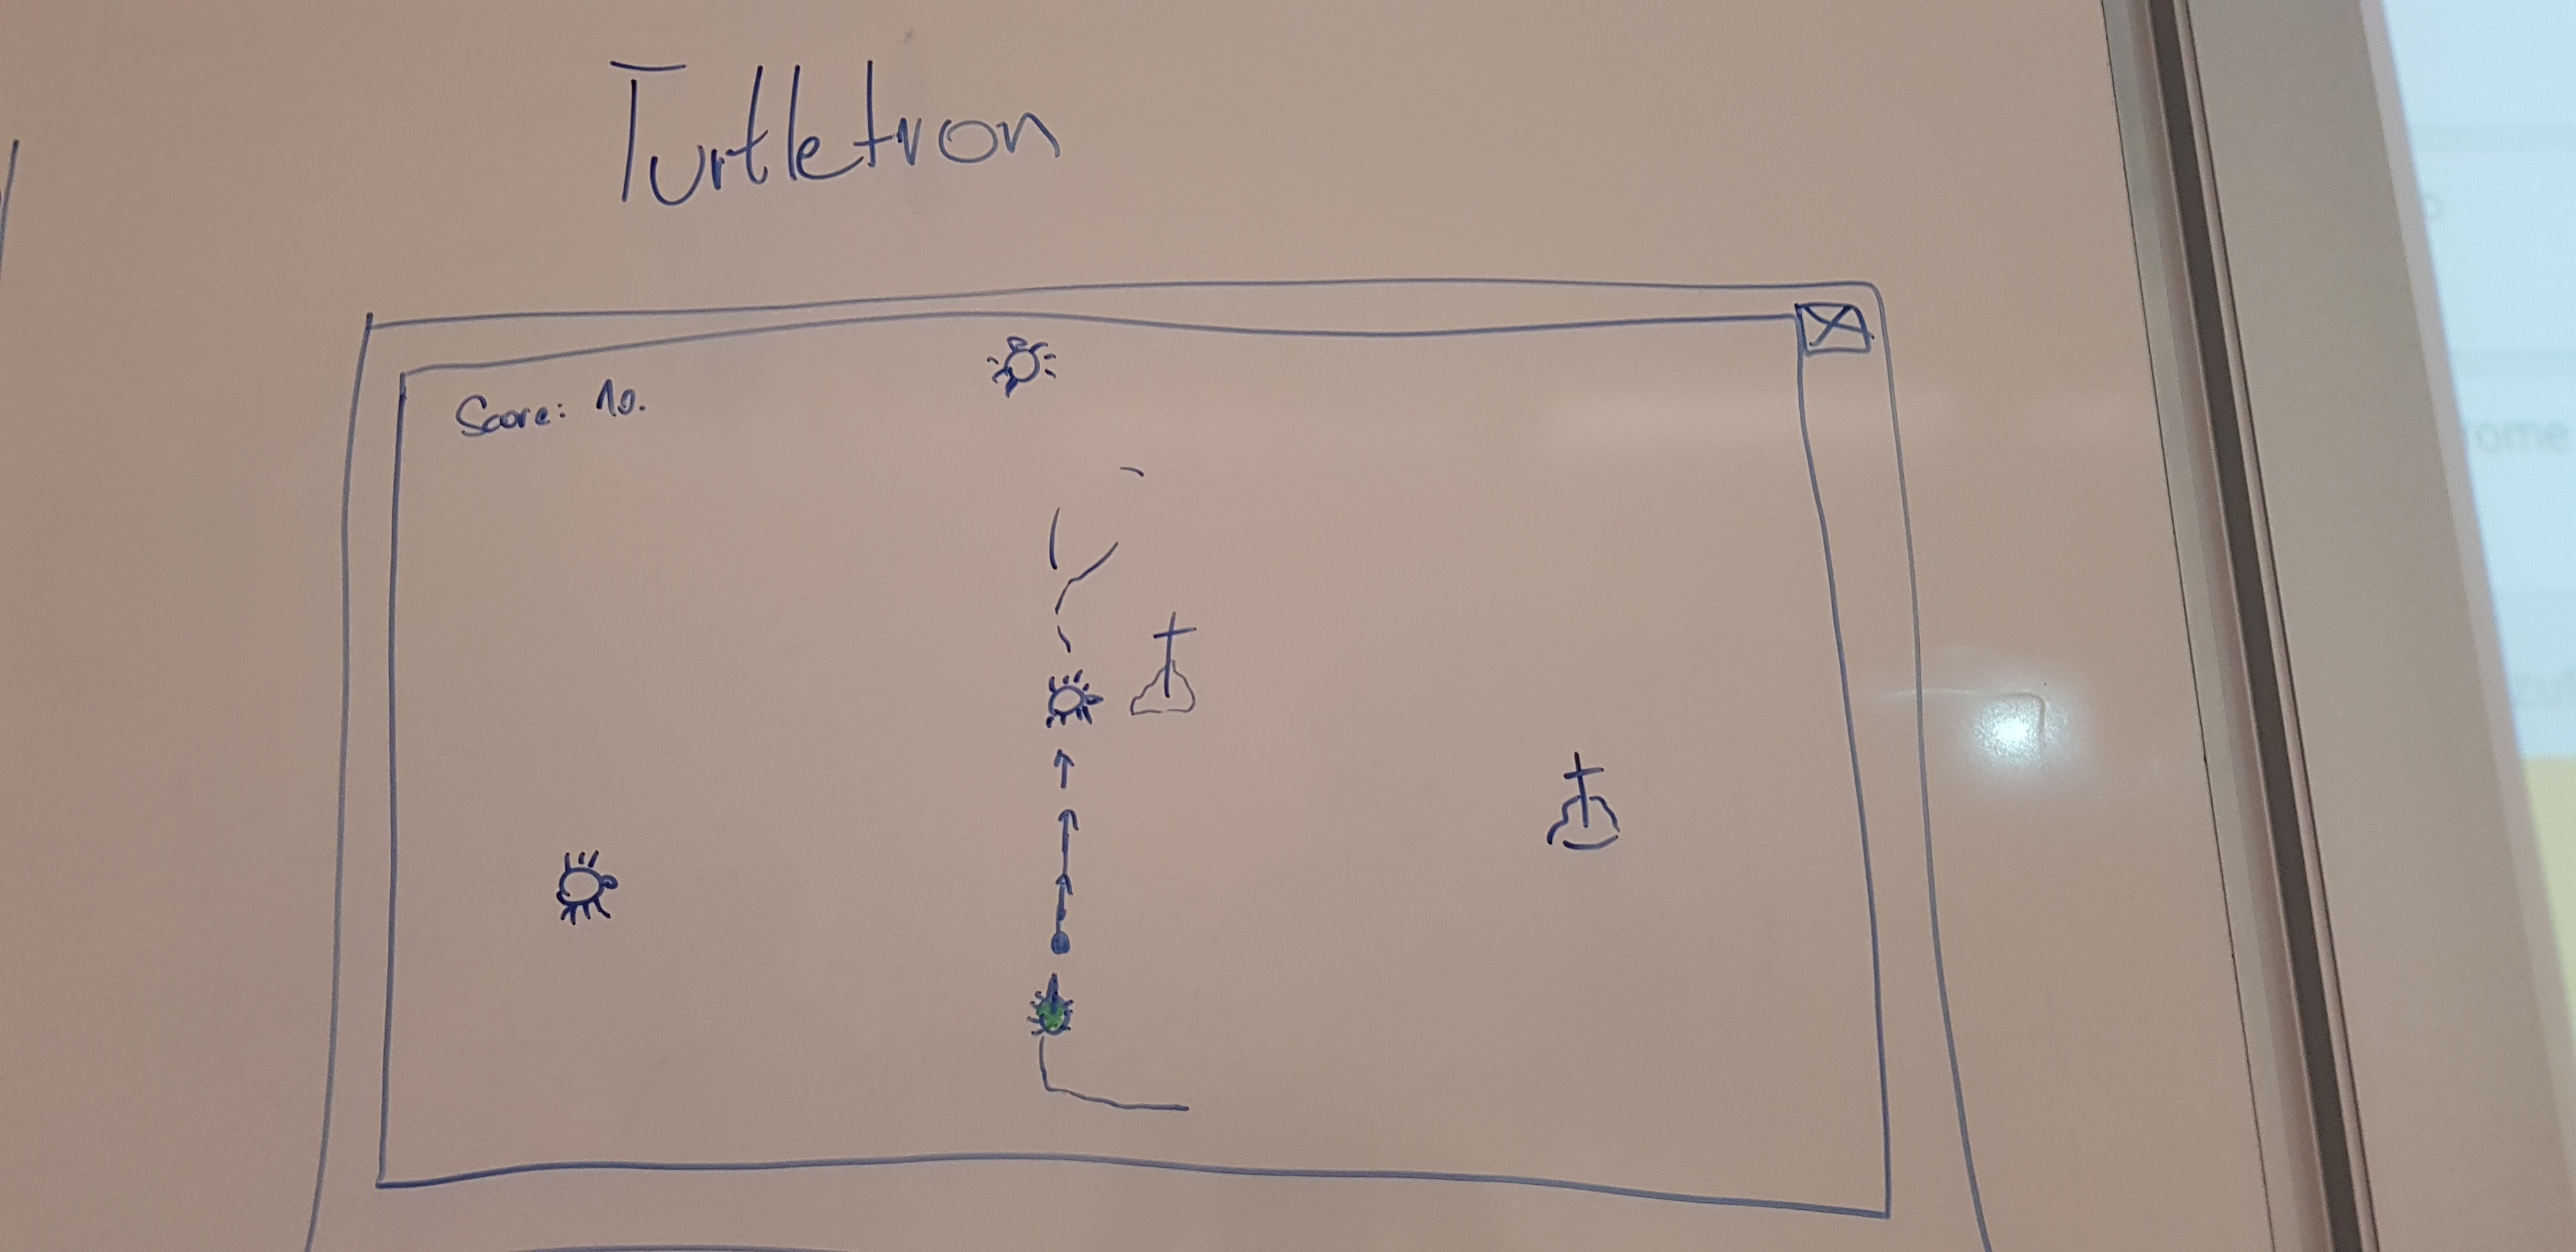 Turtletron
Score: 10.
rome